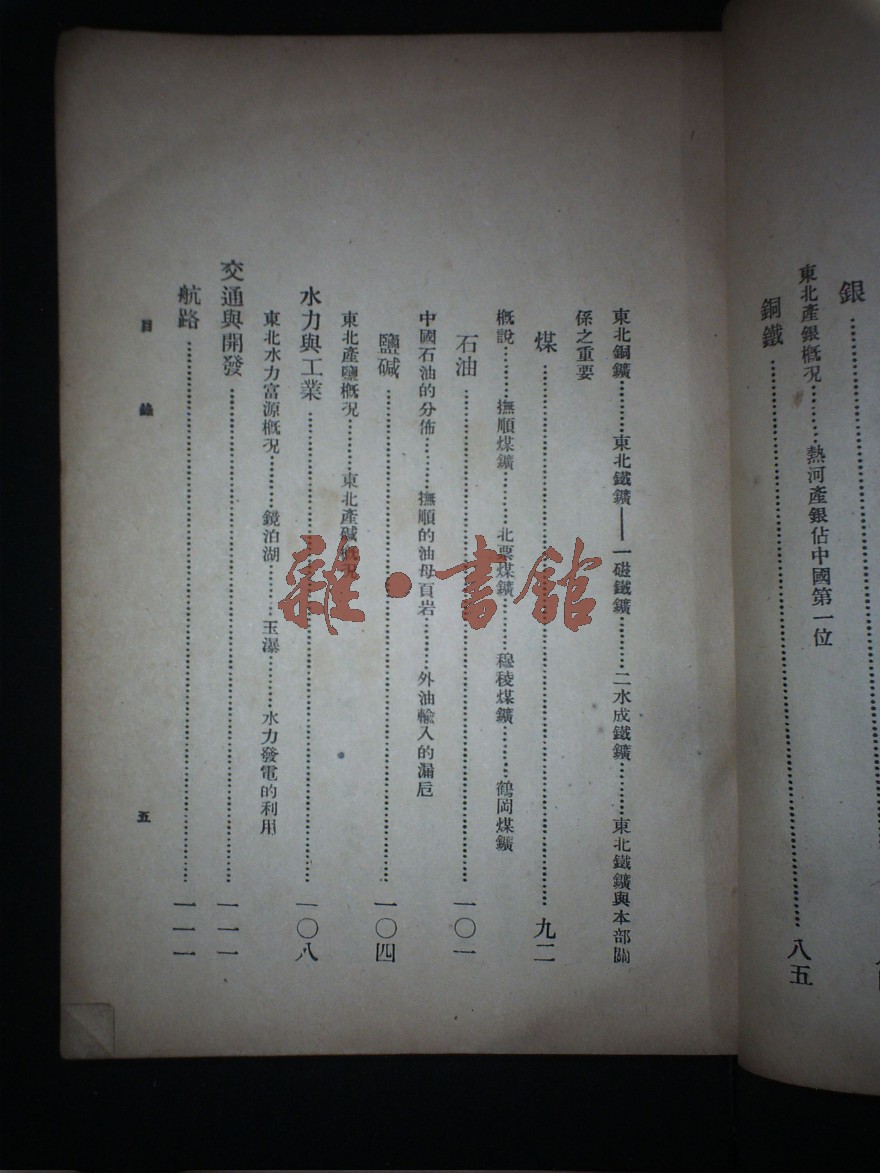 銀…………
東北產銀概況………熱河產銀佔中國第一位
銅鐵…………八五
東北銅鑛………東北鐵鑛——一磁鐵鑛………二水成鐵鑛………東北鐵鑛與本部關
係之重要
煤…………九二
概說………撫順煤鑛………北票煤鑛………穆稜煤鑛………鶴岡煤鑛
石油…………一〇一
中國石油的分佈………撫順的油母頁岩………外油輸入的漏巵
鹽碱…………一〇四
東北產鹽概況………東北產碱概況
水力與工業…………一〇八
東北水力富源概況………鏡泊湖………玉瀑………水力發電的利用
交通與開發…………一一一
航路…………一一一
目錄
五
雜·書館